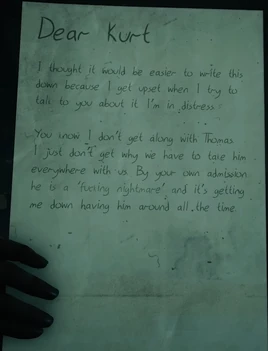 Dear Kurt
I thought it would be easier to write this
down because I get upset when I try to
talk to you about it I'm in distress
You know I don't get along with Thomas
I just don't get why we have to take him
everywhere with us By your own admission
he is a 'fucking nightmare' and it's getting
me down having him around all the time